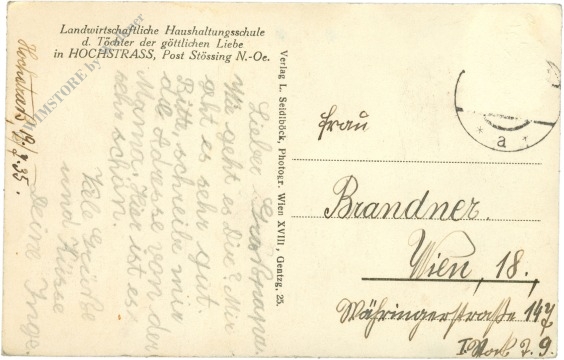 Landwirtschaftliche Haushaltungsschule
d. Töchter der göttlichen Liebe
in HOCHSTRASS, Post Stössing N.-Oe.
Hochstrass, 19./7.35.
Lieber Grosspapa.
Wie geht es Dir? Mir
geht es sehr gut.
Bitte, schreibe mir
die Adresse von der
Mama. Hier ist es
sehr schön.
Viele Grüße
und Küsse
Deine Inge
Verlag L. Seidlböck, Photogr. Wien XVIII, Gentzg. 25.
* a *
Frau
Brandner.
Wien, 18.,
Währingerstraße 147
I. Stock T. 9.